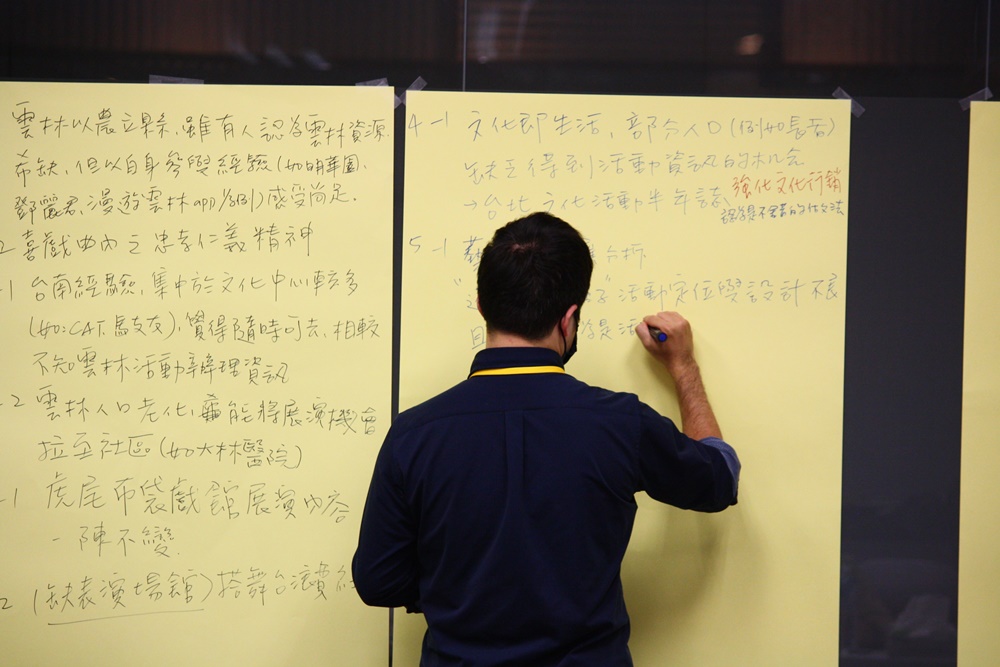 雲林以農立縣,雖有人認為雲林資源
希缺,但以自身參與經驗(如明華園、
鄧麗君、漫遊雲林app/分別)感受尚足.
2 喜戲曲內之忠孝仁義精神
-1 台南經驗,集中於文化中心較多
(如:CAT.馬友友),覺得隨時可去,相較
不知雲林活動辦理資訊
-2 雲林人口老化,盡能將展演機會
拉至社區(如大林醫院)
-1 虎尾布袋戲館展演內容
- 陳不變.
2 (缺表演場館)搭舞台浪費
4-1 文化即生活,部分人口(例如長者)
缺乏得到活動資訊的机会
→台北文化活動半年誌
強化文化行銷
5-1 藝 分析
活動定位與設計 不長
且 是活